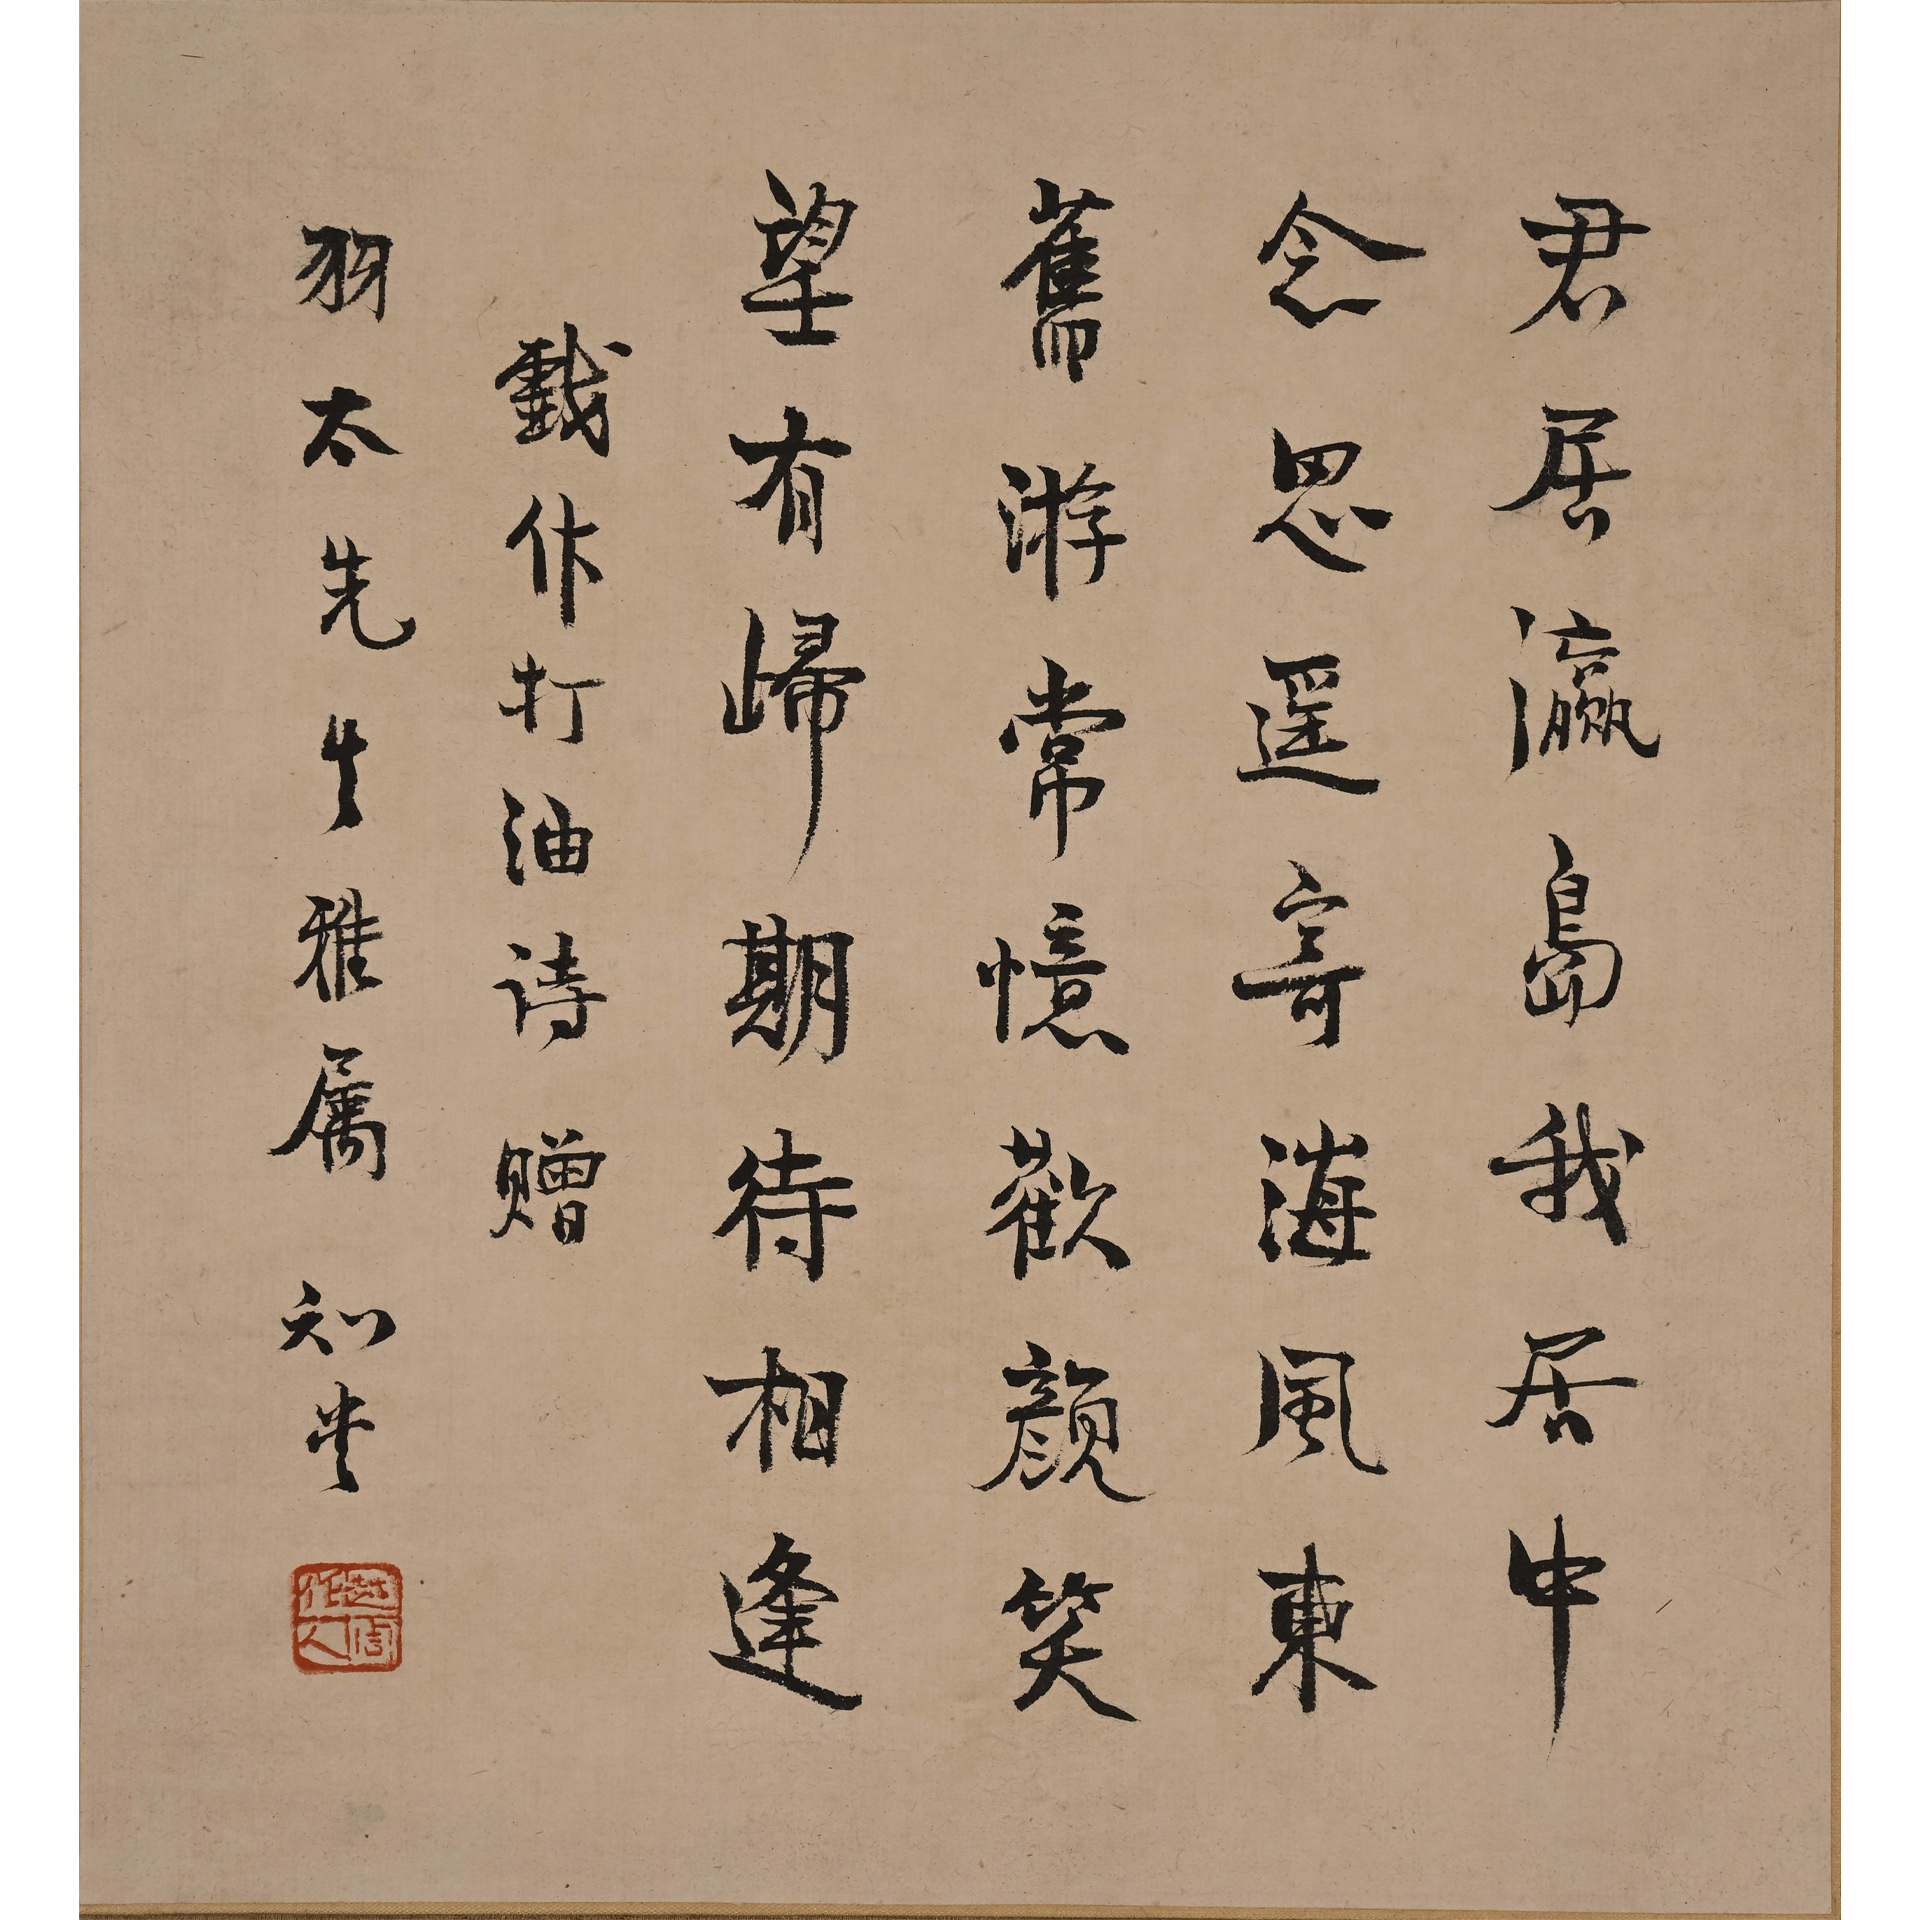 君居瀛島我居中
念思遥寄海風東
舊游常憶歡顔笑
望有歸期待相逢
戲作打油詩赠
羽太先生雅属 知堂
越周作人